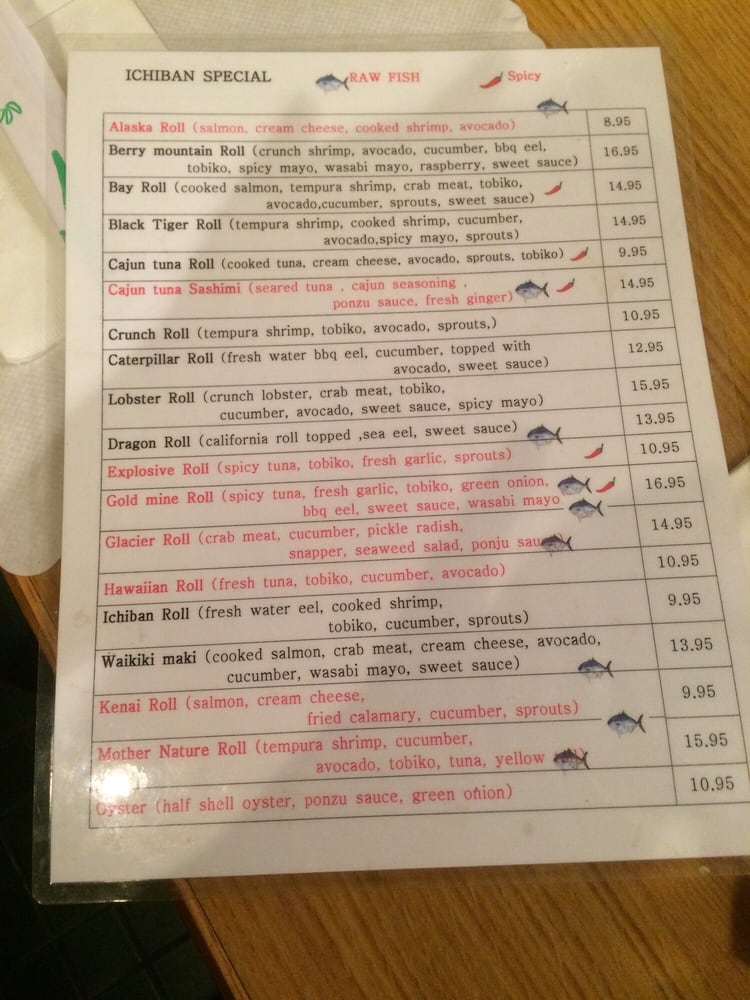 ICHIBAN SPECIAL RAW FISH Spicy
Alaska Roll (salmon, cream cheese, cooked shrimp, avocado) 8.95
Berry mountain Roll (crunch shrimp, avocado, cucumber, bbq eel, 16.95
tobiko, spicy mayo, wasabi mayo, raspberry, sweet sauce)
Bay Roll (cooked salmon, tempura shrimp, crab meat, tobiko, 14.95
avocado,cucumber, sprouts, sweet sauce)
Black Tiger Roll (tempura shrimp, cooked shrimp, cucumber, 14.95
avocado,spicy mayo, sprouts)
Cajun tuna Roll (cooked tuna, cream cheese, avocado, sprouts, tobiko) 9.95
Cajun tuna Sashimi (seared tuna , cajun seasoning , 14.95
ponzu sauce, fresh ginger)
Crunch Roll (tempura shrimp, tobiko, avocado, sprouts,) 10.95
Caterpillar Roll (fresh water bbq eel, cucumber, topped with 12.95
avocado, sweet sauce)
Lobster Roll (crunch lobster, crab meat, tobiko, 15.95
cucumber, avocado, sweet sauce, spicy mayo)
Dragon Roll (california roll topped ,sea eel, sweet sauce) 13.95
Explosive Roll (spicy tuna, tobiko, fresh garlic, sprouts) 10.95
Gold mine Roll (spicy tuna, fresh garlic, tobiko, green onion, 16.95
bbq eel, sweet sauce, wasabi mayo
Glacier Roll (crab meat, cucumber, pickle radish, 14.95
snapper, seaweed salad, ponju sau
Hawaiian Roll (fresh tuna, tobiko, cucumber, avocado) 10.95
Ichiban Roll (fresh water eel, cooked shrimp, 9.95
tobiko, cucumber, sprouts)
Waikiki maki (cooked salmon, crab meat, cream cheese, avocado, 13.95
cucumber, wasabi mayo, sweet sauce)
Kenai Roll (salmon, cream cheese, 9.95
fried calamary, cucumber, sprouts)
Mother Nature Roll (tempura shrimp, cucumber, 15.95
avocado, tobiko, tuna, yellow
Oyster (half shell oyster, ponzu sauce, green onion) 10.95